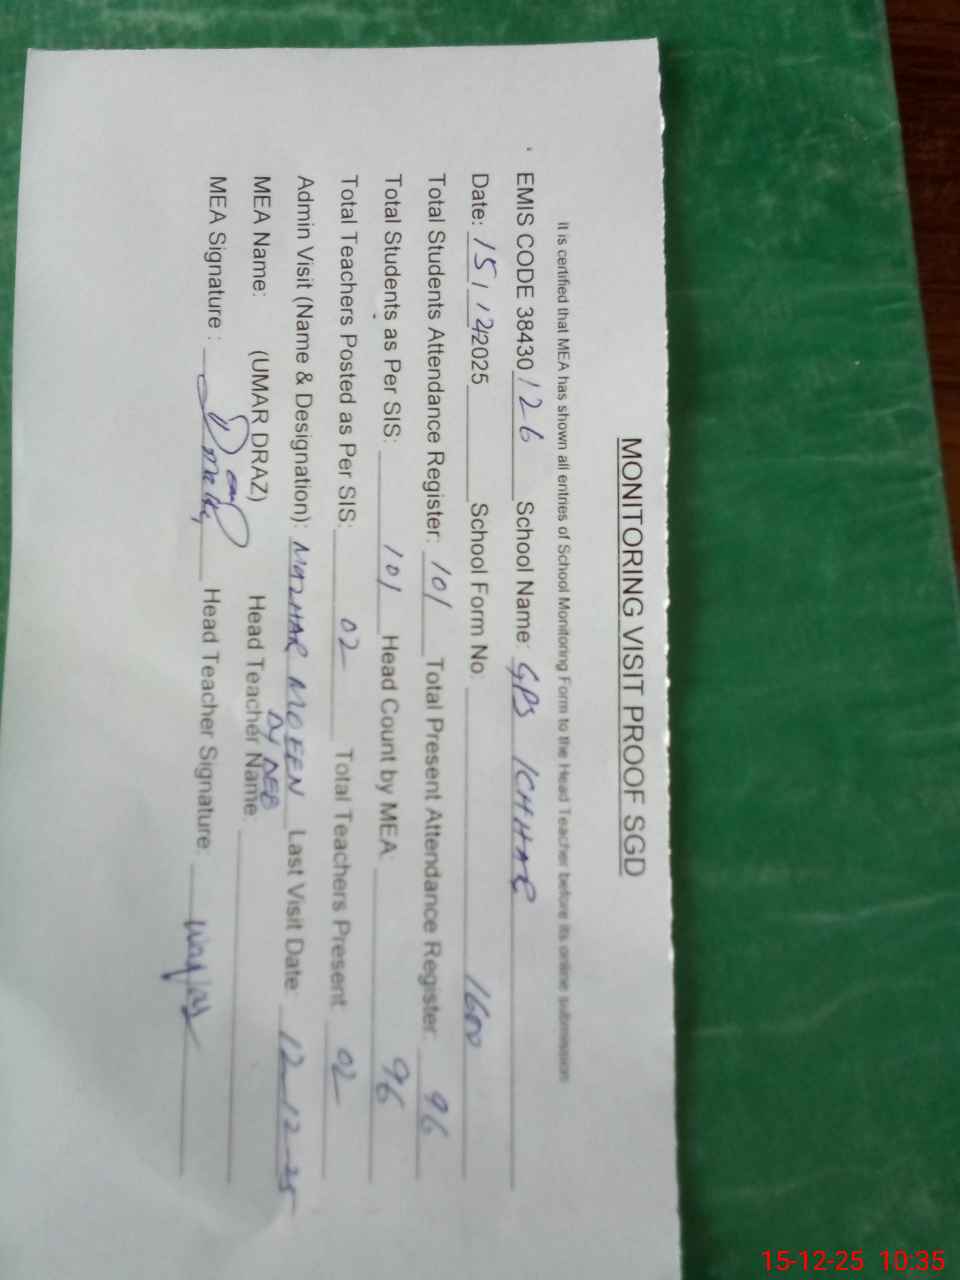 MONITORING VISIT PROOF SGD
It is certified that MEA has shown all entries of School Monitoring Form to the Head Teacher before its online submission
EMIS CODE 38430126 School Name: GPS ICHHAR
Date: 15/12/2025 School Form No. 1600
Total Students Attendance Register: 101 Total Present Attendance Register: 96
Total Students as Per SIS: 101 Head Count by MEA: 96
Total Teachers Posted as Per SIS: 02 Total Teachers Present: 02
Admin Visit (Name & Designation): MAZHAR MOEEN Last Visit Date: 12-12-25
Dy DEO
MEA Name: (UMAR DRAZ) Head Teacher Name:
MEA Signature: Head Teacher Signature:
15-12-25 10:35